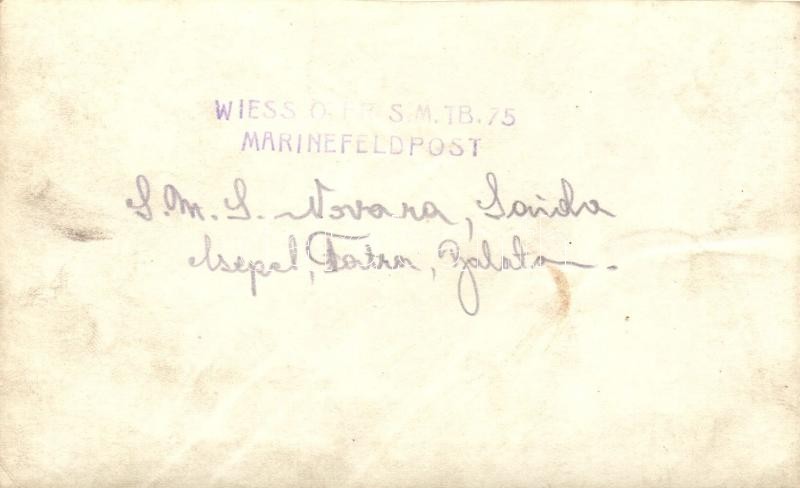 WIESS O. FR S.M.TB.75
MARINEFELDPOST
S.M.S. Novara, Saida
Csepel, Tatra, Balaton.